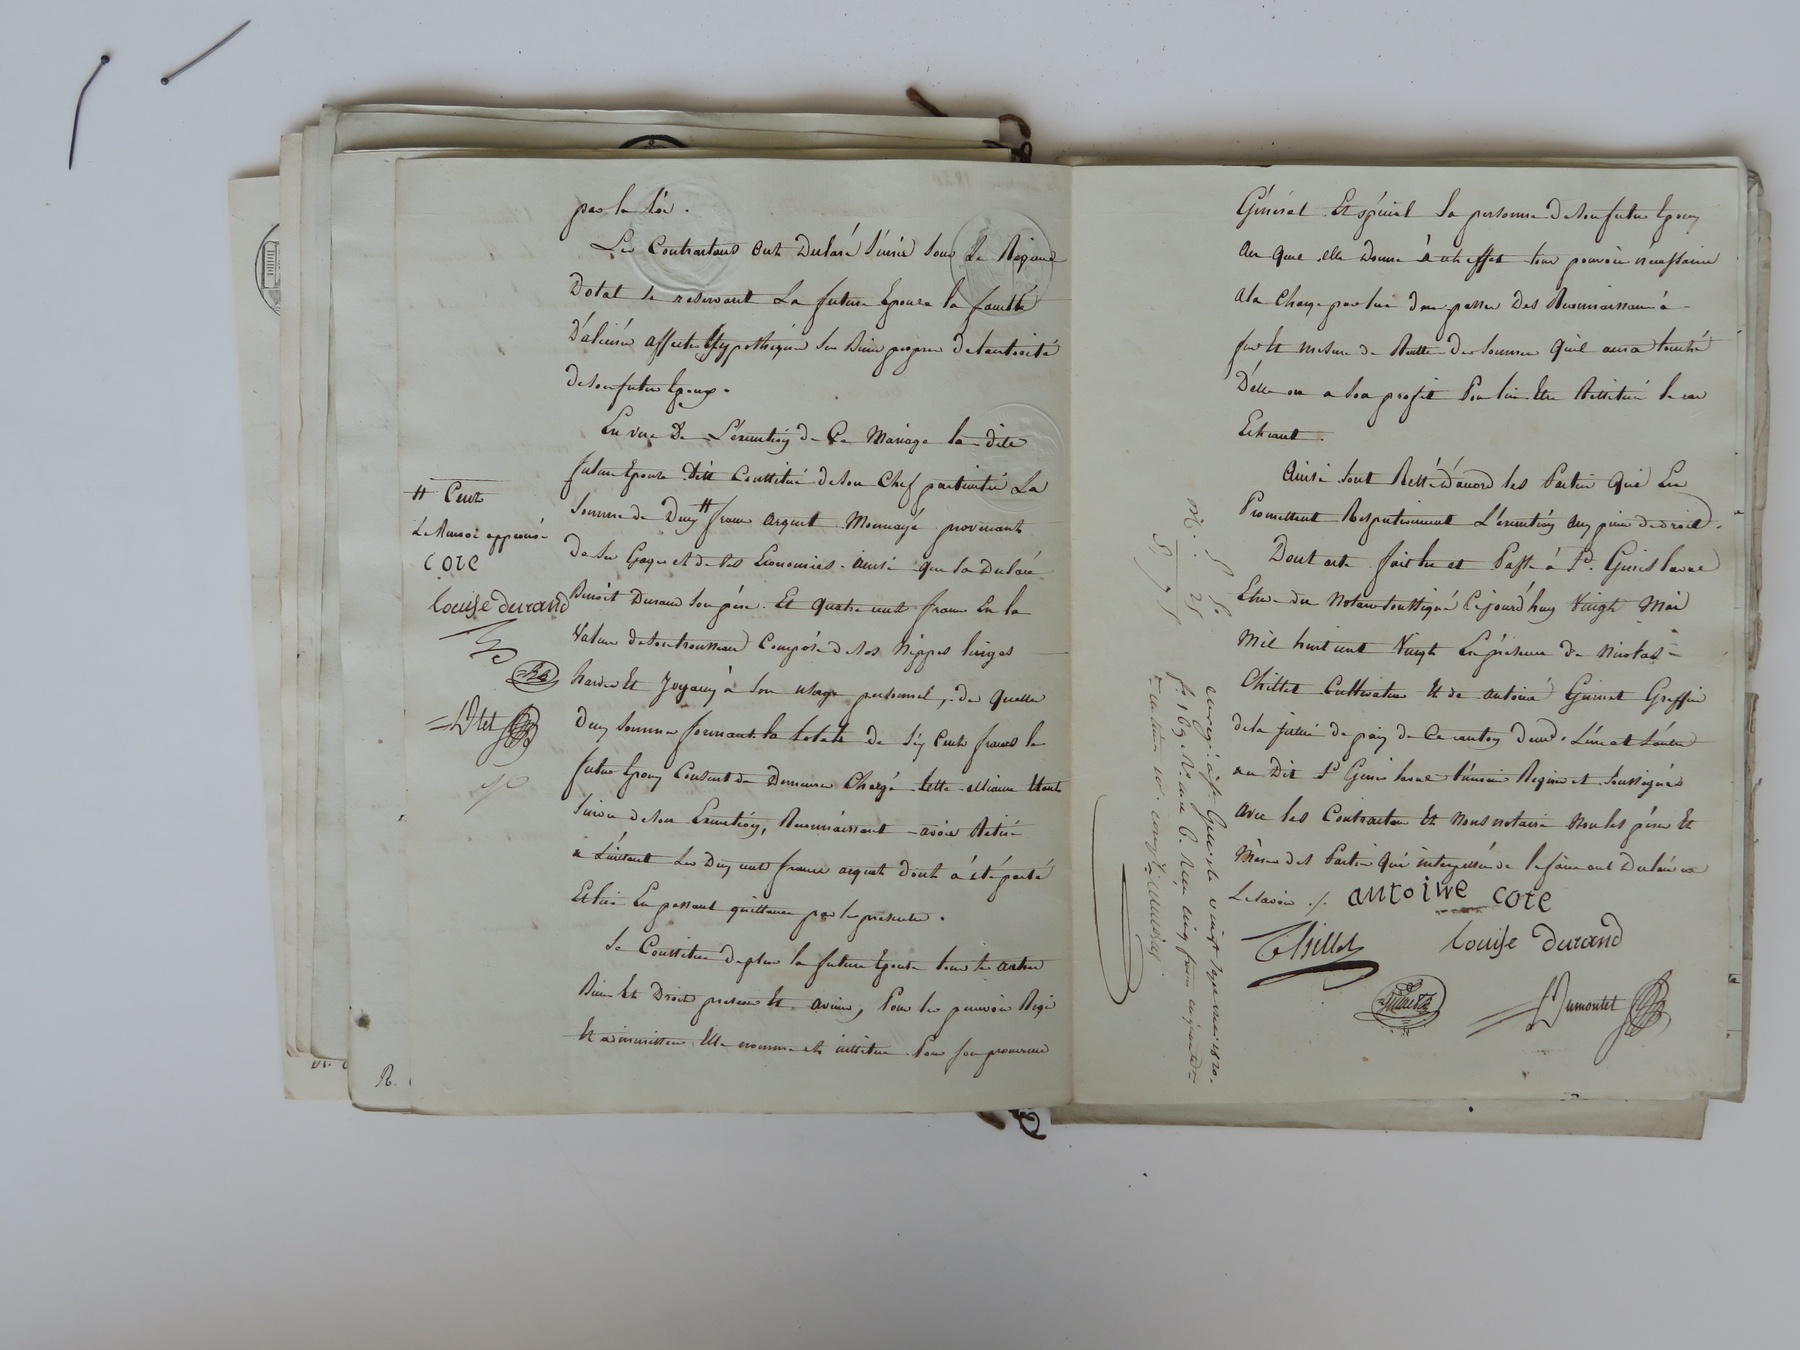 par la Loi.
Les Contractans ont Déclaré s'unir sous Le Régime
Dotal se réservant La future Epouse la faculté
D'aliéner affecter Hypothéquer ses Biens propres de l'autorité
de son futur Epoux.
En vue De L'exécution de Ce Mariage la dite
future Epouse s'est Constitué de son Chef particulier La
Somme de Deux # francs argent Monnayé provenant
de ses Gages et de ses Economies ainsi que l'a Déclaré
Benoit Durand son père. Et quatre cent francs En la
Valeur de son trousseau Composé de ses Nippes linges
hardes Et Joyaux à son usage personnel, de quelles
Deux sommes formant la totale de Six Cents francs le
futur Epoux Consent de Demeurer Chargé cette alliance étant
suivie de son Exécution, Reconnaissant avoir Retiré
a L'instant Les Deux cent francs argent dont a été parlé
Et lui En passant quittance par les présentes.
Se Constitue de plus la future Epouse tous les autres
Biens Et Droits présens Et avenir, Pour les pouvoir Régir
Et administrer Elle nomme et institue Pour son procureur
# Cent
Le Renvoi approuvé
cote
louise durand
R.
Général Et spécial la personne de son futur Epoux
au quel elle Donne à cet effet tous pouvoirs nécessaires
a la Charge par lui d'en passer Des Reconnaissances à
fur Et mesure de Recette Des sommes qu'il aura touché
D'elle ou a son profit Pour lui Etre Restitué le cas
Echéant.
Ainsi sont Resté d'accord les Parties qui En
Promettent Respectivement L'exécution aux peines de droit.
Dont acte fait lu et Passé à St. Genis Laval
Etude du Notaire soussigné Cejourd'huy Vingt Mai
Mil huit cent Vingt En présence de Nicolas
Chillet Cultivateur Et de antoine Guinet Greffier
de la justice de paix de Ce canton dem.t L'un et L'autre
au Dit St Genis Laval témoins Requis et soussignés
avec les Contractans Et Nous notaire Non les pères Et
Mères des Parties qui interpellés de le faire ont Déclaré ne
Le savoir ./. antoine cote
Chillet louise durand
Dumontet
5 . 50
25
5 75